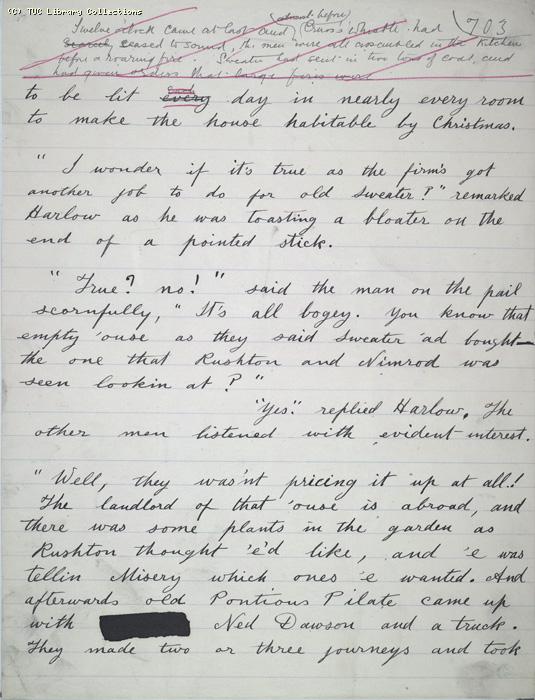 (C) TUC Library Collections
703
almost before
Twelve o'clock came at last and Crass's whistle had
scarcely ceased to sound, the men were all assembled in the kitchen
before a roaring fire. Sweater had sent in two tons of coal, and
had given orders that large fires were
to be lit every day in nearly every room
to make the house habitable by Christmas.
" I wonder if it's true as the firm's got
another job to do for old Sweater?" remarked
Harlow as he was toasting a bloater on the
end of a pointed stick.
" True? no!" said the man on the pail
scornfully, " It's all bogey. You know that
empty 'ouse as they said Sweater 'ad bought—
the one that Rushton and Nimrod was
seen lookin at?"
"Yes". replied Harlow. The
other men listened with evident interest.
" Well, they was'nt pricing it up at all.!
The landlord of that 'ouse is abroad, and
there was some plants in the garden as
Rushton thought 'e'd like, and 'e was
tellin Misery which ones 'e wanted. And
afterwards old Pontious Pilate came up
with Ned Dawson and a truck.
They made two or three journeys and took